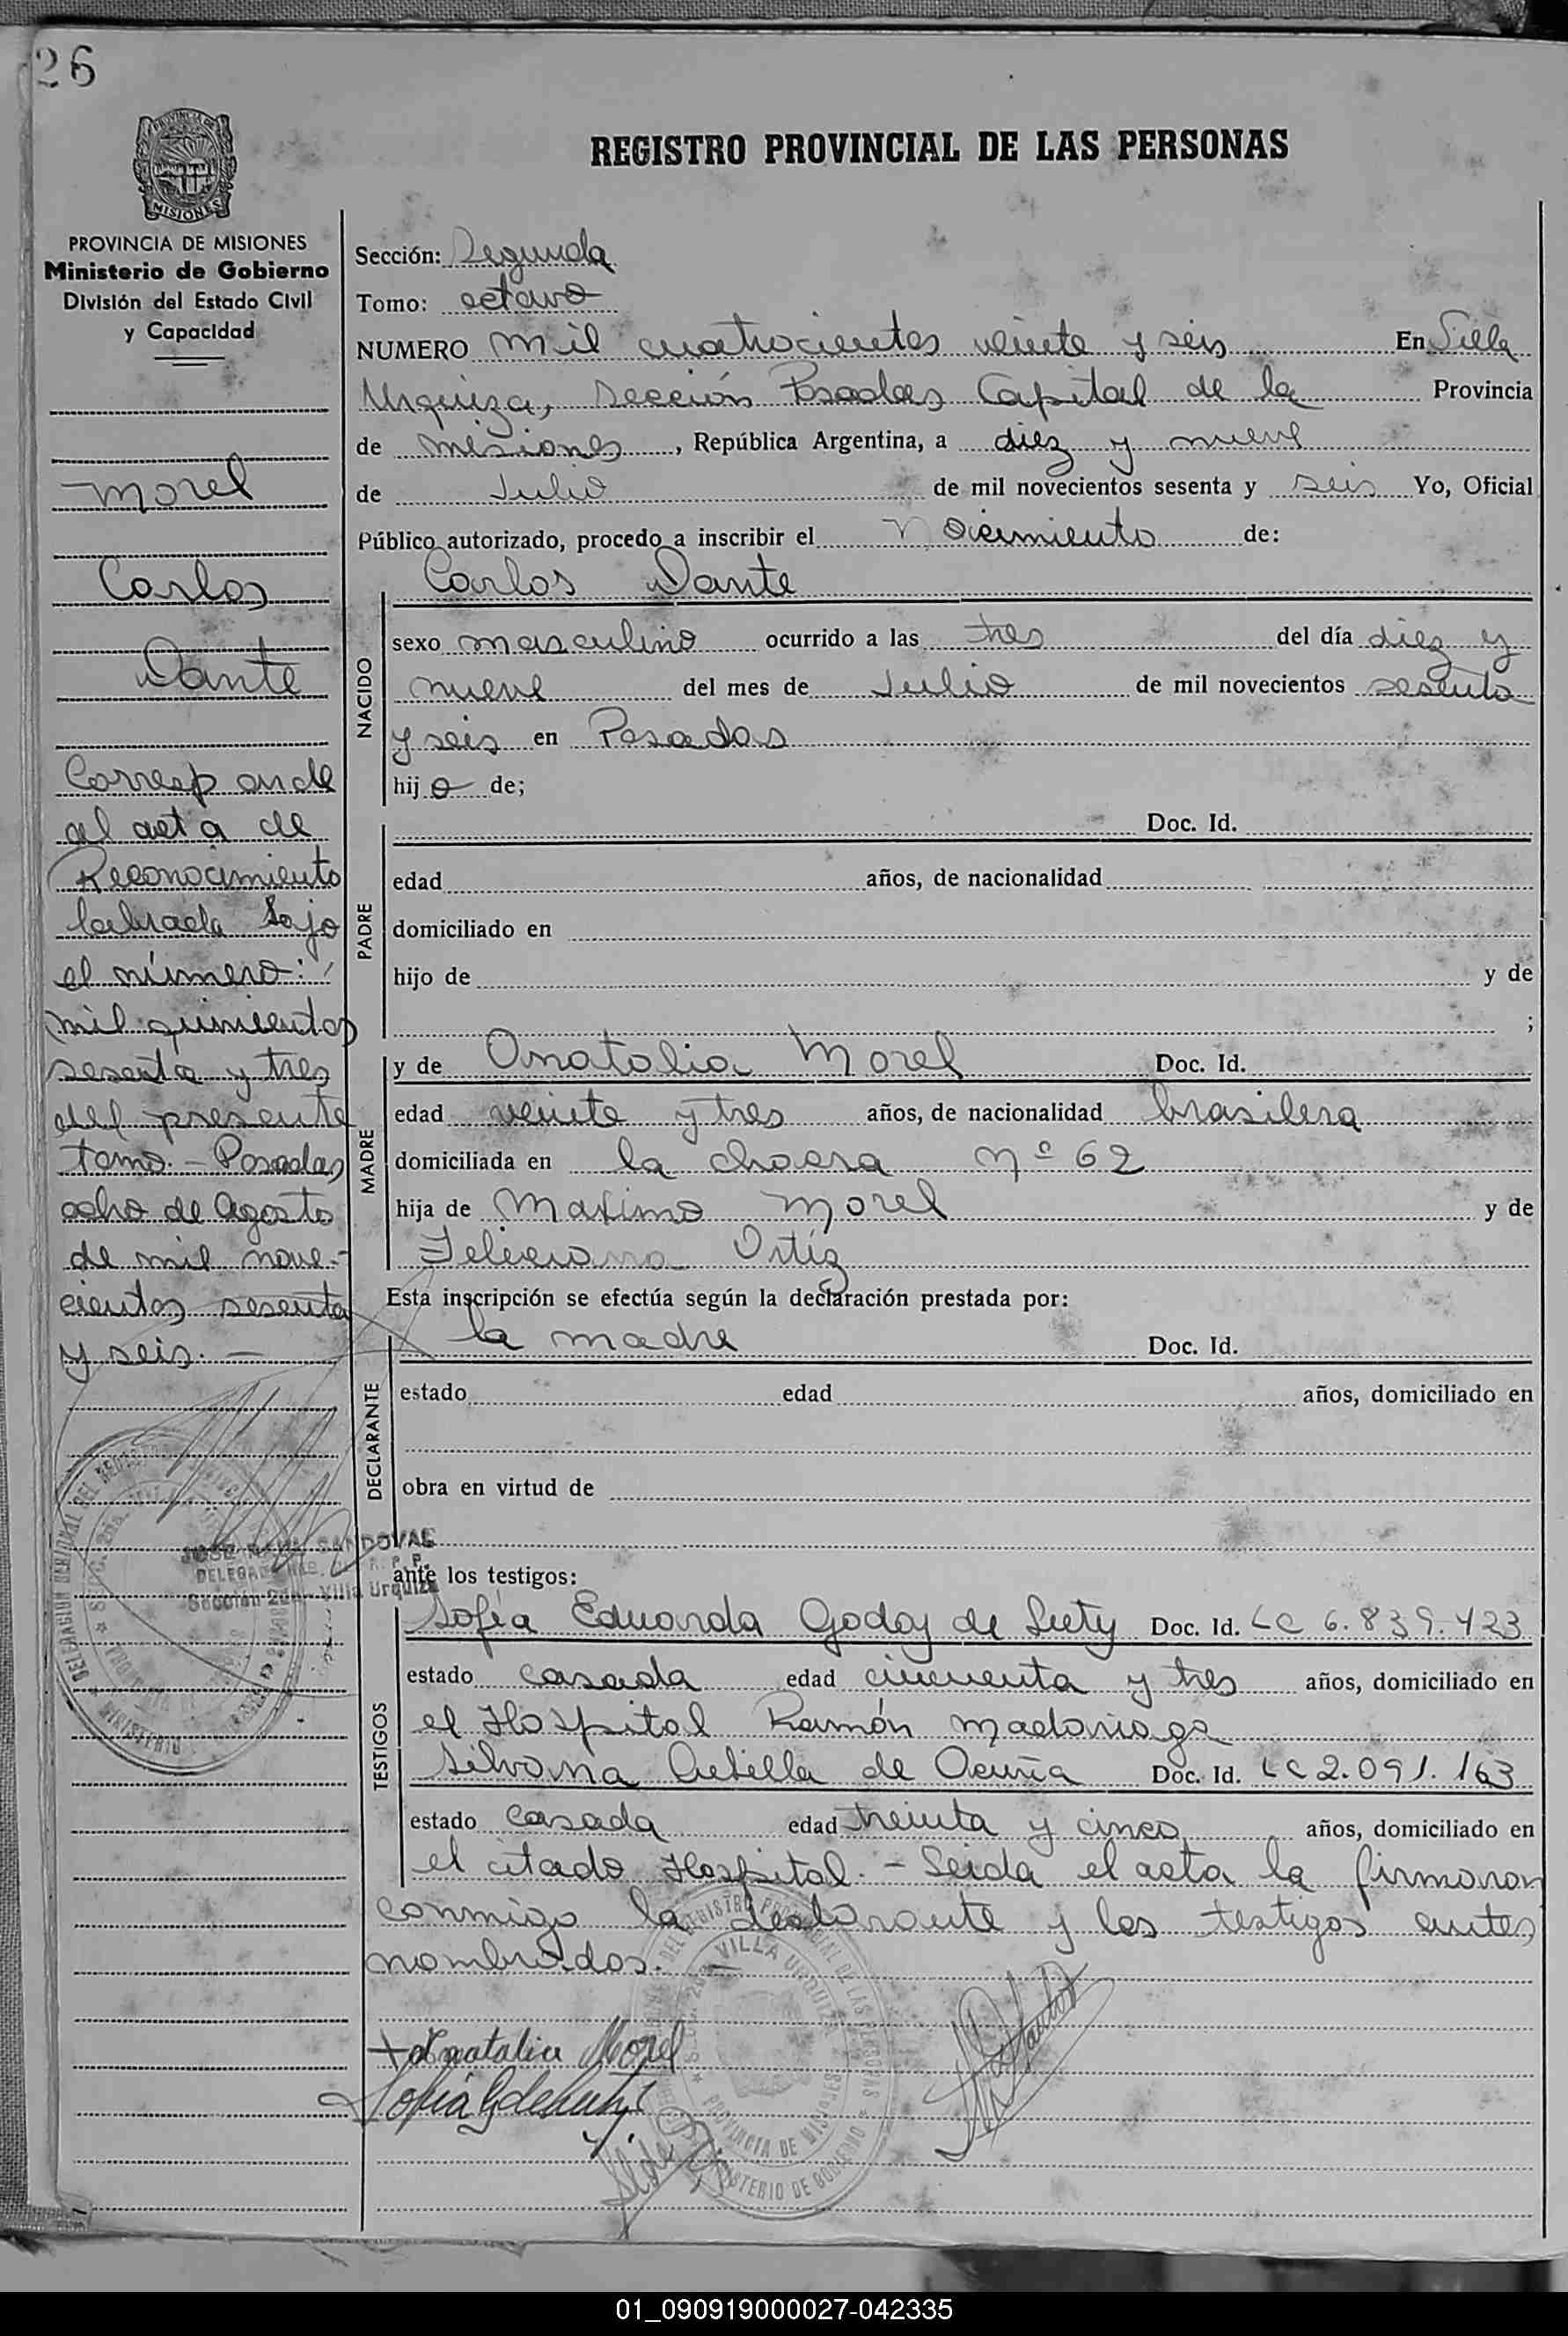 26
PROVINCIA DE
MISIONES
REGISTRO PROVINCIAL DE LAS PERSONAS
PROVINCIA DE MISIONES
Ministerio de Gobierno
División del Estado Civil
y Capacidad
Morel
Carlos
Dante
Corresponde
al acta de
Reconocimiento
labrada bajo
el número:
mil quinientos
sesenta y tres
del presente
tomo.- Posadas,
ocho de Agosto
de mil nove-
cientos sesenta
y seis.-
Sección: Segunda
Tomo: octavo
NUMERO mil cuatrocientos veinte y seis En Villa
Urquiza, Sección Posadas Capital de la Provincia
de Misiones, República Argentina, a diez y nueve
de Julio de mil novecientos sesenta y seis Yo, Oficial
Público autorizado, procedo a inscribir el Nacimiento de:
Carlos Dante
NACIDO
sexo masculino ocurrido a las tres del día diez y
nueve del mes de Julio de mil novecientos sesenta
y seis en Posadas
hijo de;
Doc. Id.
PADRE
edad años, de nacionalidad
domiciliado en
hijo de y de
;
MADRE
y de Anatalia Morel Doc. Id.
edad veinte y tres años, de nacionalidad brasilera
domiciliada en la chacra Nº 62
hija de Maximo Morel y de
Feliciana Ortiz
Esta inscripción se efectúa según la declaración prestada por:
la madre Doc. Id.
DECLARANTE
estado edad años, domiciliado en
obra en virtud de
SANDOVAL
Sección 2da. Villa Urquiza
ante los testigos:
TESTIGOS
Sofía Eduarda Godoy de Doc. Id. LC 6.839.423
estado casada edad cincuenta y tres años, domiciliado en
el Hospital Ramón Madariaga
Silvana de Acuña Doc. Id. LC 2.091.163
estado casada edad treinta y cinco años, domiciliado en
el citado Hospital.- Leida el acta la firmaron
conmigo la declarante y los testigos antes
nombrados.-
VILLA URQUIZA
PROVINCIA DE MISIONES
MINISTERIO DE GOBIERNO
Anatalia Morel
01_090919000027-042335